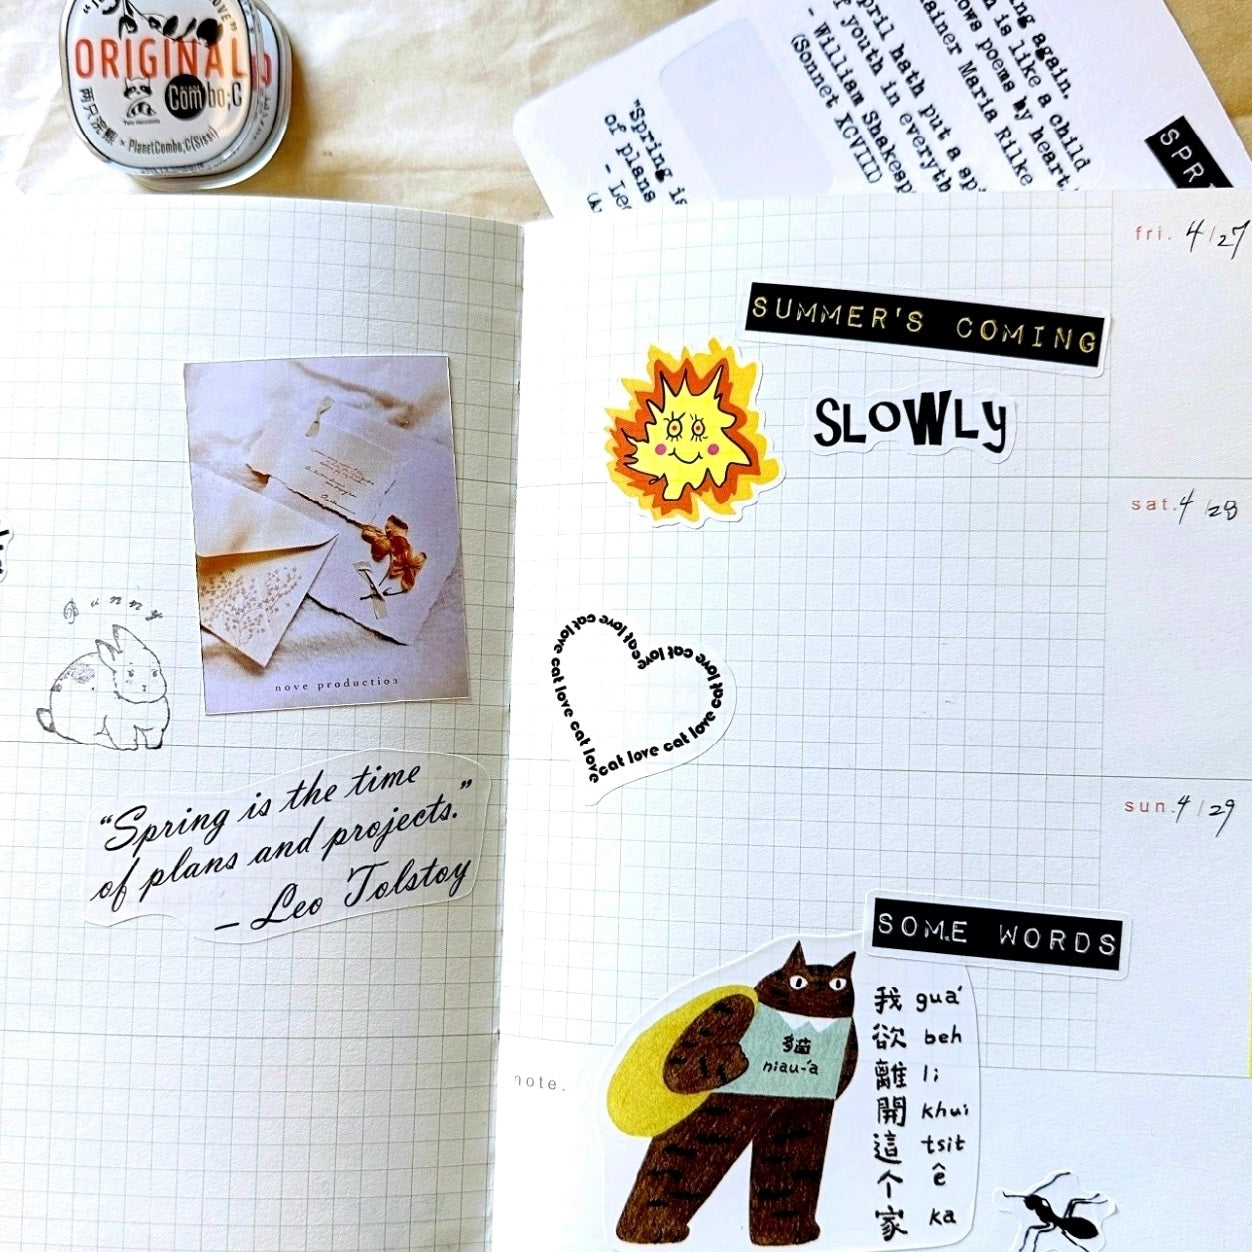 ORIGINAL
Combo;C
两只浣熊 × PlanetCombo;C(Sissi)
ng again.
is like a child
ows poems by heart
ainer Maria Rilke
pril hath put a sp
f youth in everyth
- William Shakesp
(Sonnet XCVIII)
"Spring is
of plans
- Leo
SPRI
fri. 4/27
SUMMER'S COMING
SLOWLY
sat. 4/28
nove production
Bunny
cat love cat love cat love cat love cat love cat love cat love cat love
"Spring is the time
of plans and projects."
— Leo Tolstoy
sun. 4/29
SOME WORDS
貓
niau-á
我 guá
欲 beh
離 li
開 khui
這 tsit
个 ê
家 ka
note.